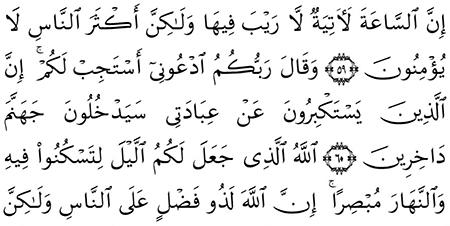 إِنَّ ٱلسَّاعَةَ لَـَٔاتِيَةٌ لَّا رَيْبَ فِيهَا وَلَـٰكِنَّ أَكْثَرَ ٱلنَّاسِ لَا
يُؤْمِنُونَ ۝٥٩ وَقَالَ رَبُّكُمُ ٱدْعُونِىٓ أَسْتَجِبْ لَكُمْ ۚ إِنَّ
ٱلَّذِينَ يَسْتَكْبِرُونَ عَنْ عِبَادَتِى سَيَدْخُلُونَ جَهَنَّمَ
دَاخِرِينَ ۝٦٠ ٱللَّهُ ٱلَّذِى جَعَلَ لَكُمُ ٱلَّيْلَ لِتَسْكُنُوا۟ فِيهِ
وَٱلنَّهَارَ مُبْصِرًا ۚ إِنَّ ٱللَّهَ لَذُو فَضْلٍ عَلَى ٱلنَّاسِ وَلَـٰكِنَّ